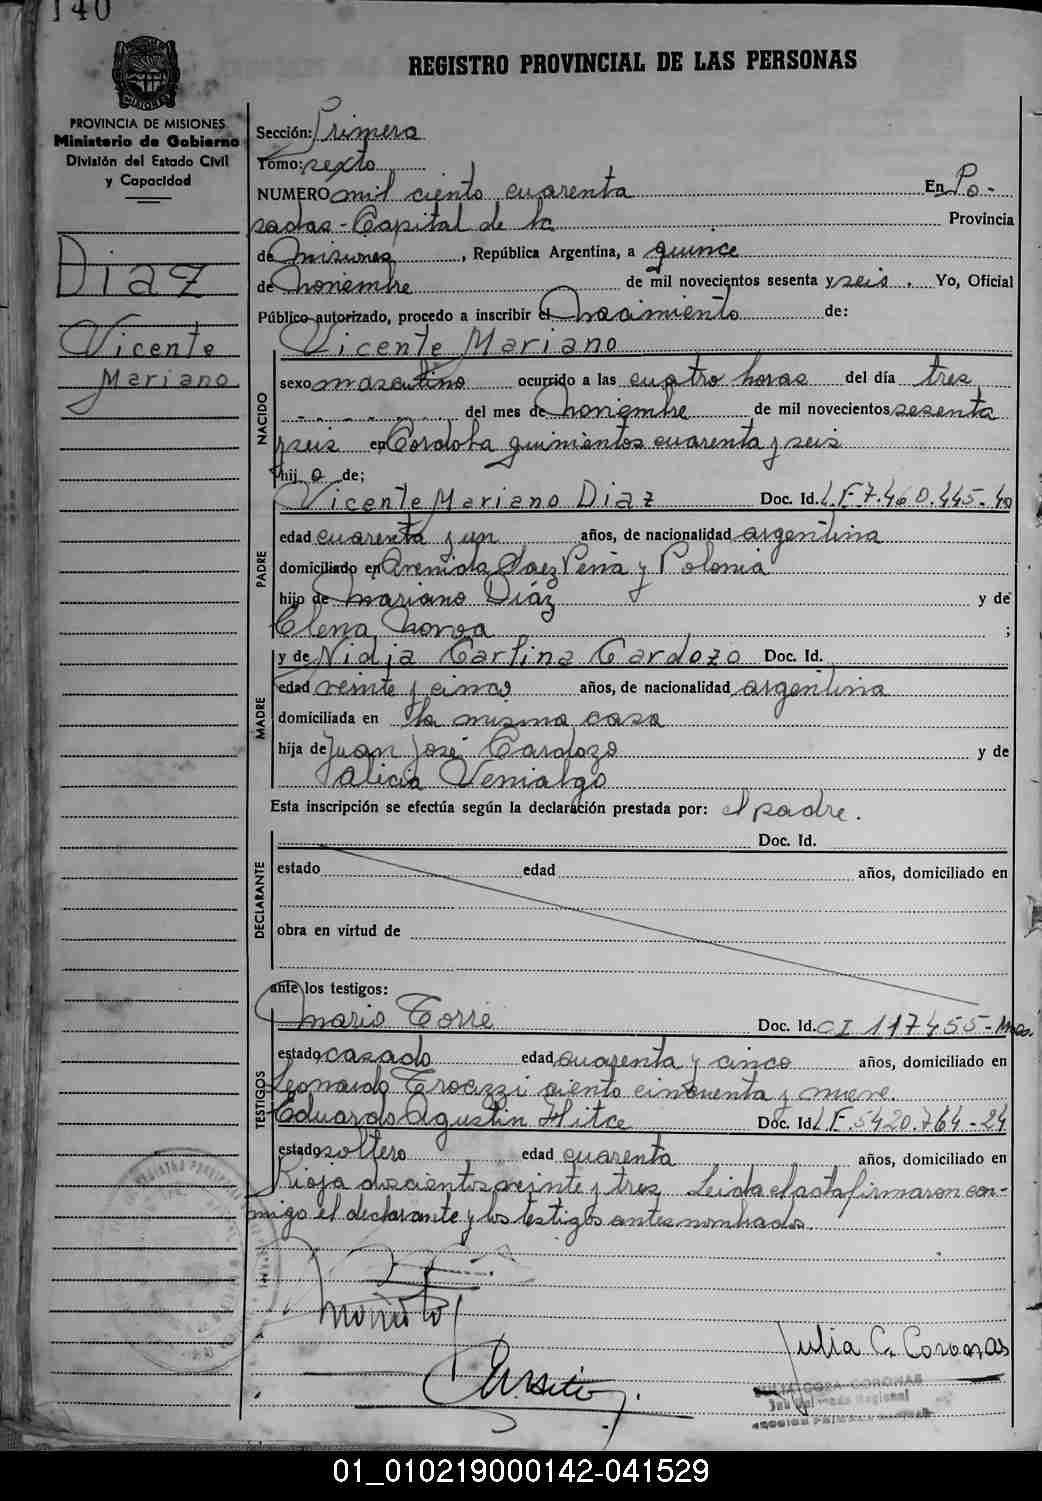 140
REGISTRO PROVINCIAL DE LAS PERSONAS
PROVINCIA DE MISIONES
Ministerio de Gobierno
División del Estado Civil
y Capacidad
Diaz
Vicente
Mariano
Sección: Primera
Tomo: sexto
NUMERO mil ciento cuarenta En Po-
sadas - Capital de la Provincia
de Misiones, República Argentina, a quince
de Noviembre de mil novecientos sesenta y seis. Yo, Oficial
Público autorizado, procedo a inscribir el Nacimiento de:
NACIDO
Vicente Mariano
sexo masculino ocurrido a las cuatro horas del día tres
del mes de Noviembre de mil novecientos sesenta
y seis en Cordoba quinientos cuarenta y seis
hijo de;
PADRE
Vicente Mariano Diaz Doc. Id. L.E 7.460.445-40
edad cuarenta y un años, de nacionalidad argentina
domiciliado en Avenida Saez Peña y Polonia
hijo de Mariano Díaz y de
Elena ;
MADRE
y de Nidia Carlina Cardozo Doc. Id.
edad veinte y cinco años, de nacionalidad argentina
domiciliada en la misma casa
hija de Juan José Cardozo y de
Alicia Venialgo
Esta inscripción se efectúa según la declaración prestada por: el padre.
DECLARANTE
Doc. Id.
estado edad años, domiciliado en
obra en virtud de
ante los testigos:
TESTIGOS
Mario Torre Doc. Id. CI 117455-Mnes.
estado casado edad cuarenta y cinco años, domiciliado en
Leonardo Trocizzi ciento cincuenta y nueve.
Eduardo Agustin Hitce Doc. Id. L.E. 5420.764-24
estado soltero edad cuarenta años, domiciliado en
Rioja doscientos veinte y tres. Leida el acta firmaron con-
migo el declarante y los testigos antes nombrados.
Julia C. Coronas
JULIA COSA CORONAS
01_010219000142-041529